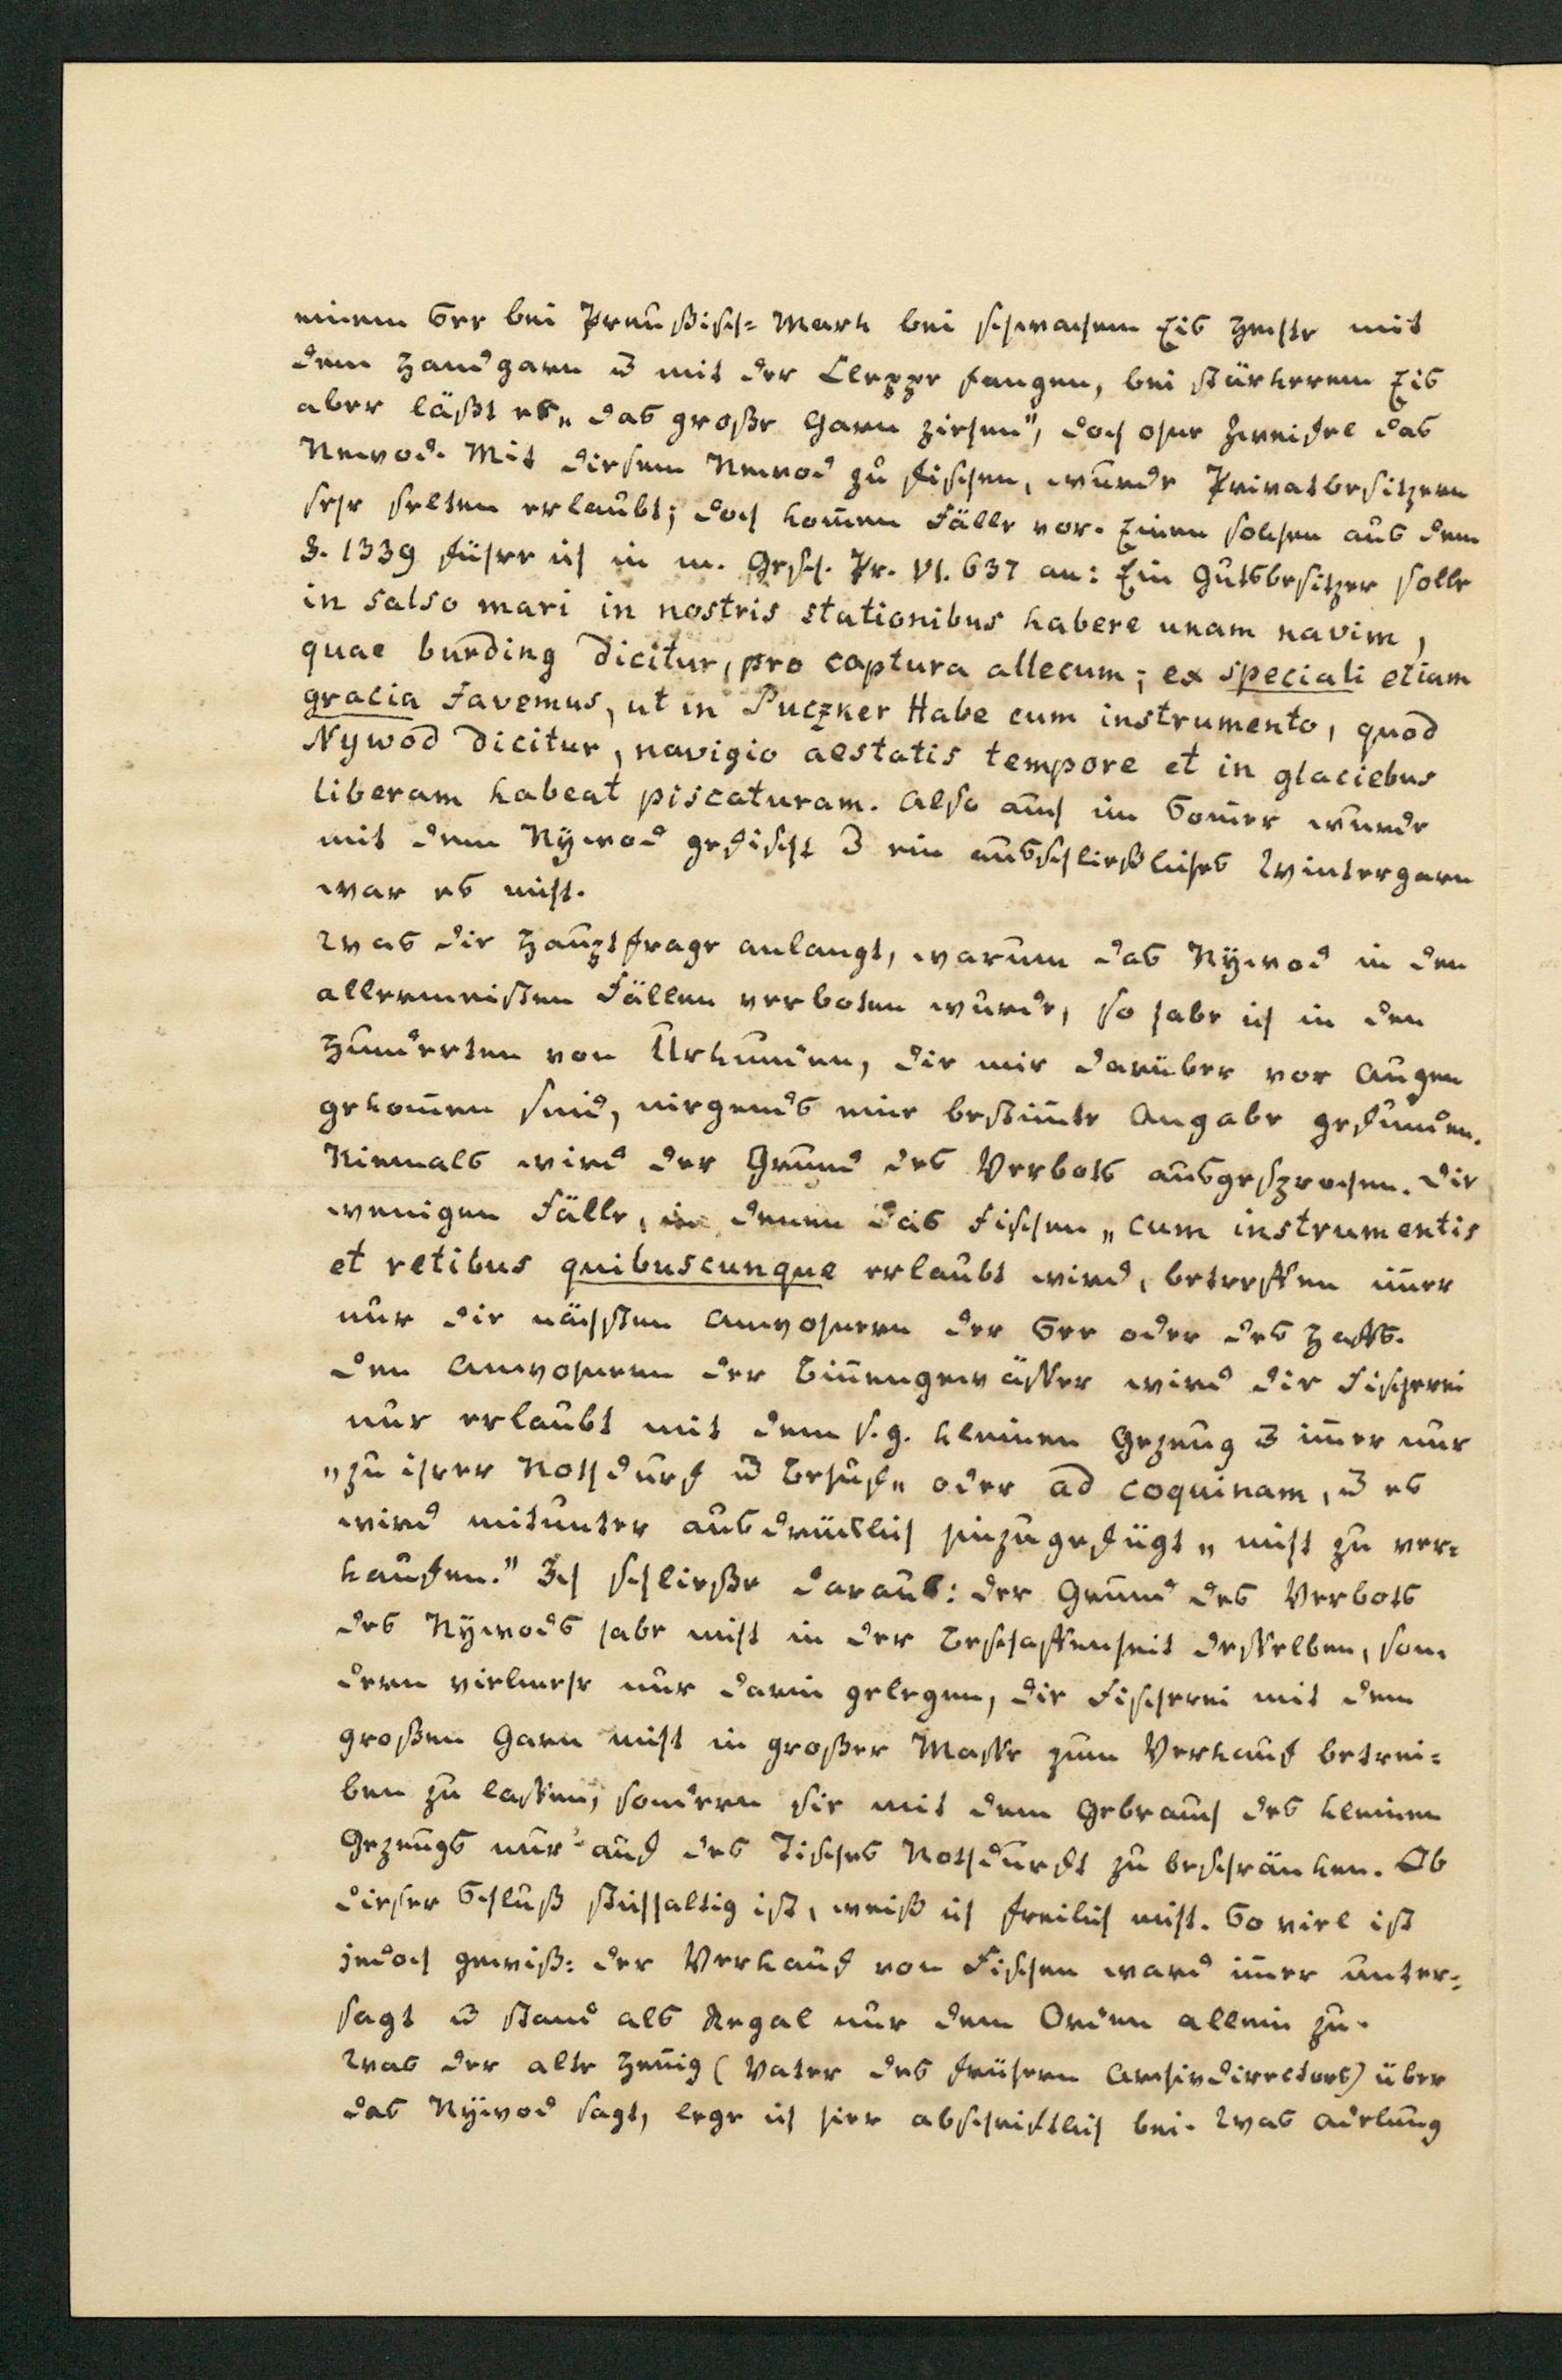 einem See bei Preußisch= Mark bei schwachem Eis Hechte mit
dem Handgarn u mit der Cleppe fangen, bei stärkerem Eis
aber läßt er „das große Garn ziehen", doch ohne Zweifel das
Newod. Mit diesem Newod zu fischen, wurde Privatbesitzern
sehr selten erlaubt; doch kom̄en Fälle vor. Einen solchen aus dem
J. 1339 führe ich in m. Gesch. Pr. VI. 637 an: Ein Gutsbesitzer solle
in salso mari in nostris stationibus habere unam navim,
quae burding dicitur, pro captura allecum; ex speciali etiam
gracia favemus, ut in Puczker Habe cum instrumento, quod
Nywod dicitur, navigio aestatis tempore et in glaciebus
liberam habeat piscaturam. Also auch im Som̄er wurde
mit dem Nÿwod gefischt u ein ausschließliches Wintergarn
war es nicht.
Was die Hauptfrage anlangt, warum das Nÿwod in den
allermeisten Fällen verboten wurde, so habe ich in den
Hunderten von Urkunden, die mir darüber vor Augen
gekom̄en sind, nirgends eine bestim̄te Angabe gefunden.
Niemals wird der Grund des Verbots ausgesprochen. Die
wenigen Fälle, in denen das Fischen „cum instrumentis
et retibus quibuscunque erlaubt wird, betreffen im̄er
nur die nächsten Anwohnern der See oder des Haffs.
Den Anwohnern der Bin̄engewässer wird die Fischerei
nur erlaubt mit dem s.g. kleinen Gezeug u im̄er nur
„zu ihrer Nothdurf u Behuf„ oder ad coquinam, u es
wird mitunter ausdrücklich hinzugefügt „nicht zu ver=
kaufen." Ich schließe daraus: der Grund des Verbots
des Nÿwods habe nicht in der Beschaffenheit desselben, son
dern vielmehr nur darin gelegen, die Fischerei mit dem
großen Garn nicht in großer Masse zum Verkauf betrei=
ben zu lassen, sondern sie mit dem Gebrauch des kleinen
Gezeugs nur auf des Tisches Nothdurft zu beschränken. Ob
dieser Schluß stichhaltig ist, weiß ich freilich nicht. So viel ist
jedoch gewiß: der Verkauf von Fischen ward im̄er unter=
sagt u stand als Regal nur dem Orden allein zu.
Was der alte Hen̄ig (Vater des frühern Archivdirectors) über
das Nÿwod sagt, lege ich hier abschriftlich bei. Was Adelung